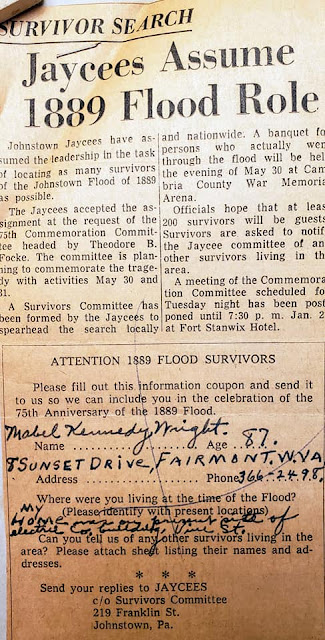 SURVIVOR SEARCH
Jaycees Assume
1889 Flood Role
Johnstown Jaycees have as-
sumed the leadership in the task
of locating as many survivors
of the Johnstown Flood of 1889
as possible.
The Jaycees accepted the as-
signment at the request of the
75th Commemoration Commit-
tee headed by Theodore B.
Focke. The committee is plan-
ning to commemorate the trage-
dy with activities May 30 and
31.
A Survivors Committee has
been formed by the Jaycees to
spearhead the search locally
and nationwide. A banquet fo
persons who actually wen
through the flood will be hel
the evening of May 30 at Cam
bria County War Memoria
Arena.
Officials hope that at leas
200 survivors will be guests
Survivors are asked to notif
the Jaycee committee of an
other survivors living in th
area.
A meeting of the Commemora
tion Committee scheduled fo
Tuesday night has been post
poned until 7:30 p. m. Jan. 2
at Fort Stanwix Hotel.
ATTENTION 1889 FLOOD SURVIVORS
Please fill out this information coupon and send it
to us so we can include you in the celebration of the
75th Anniversary of the 1889 Flood.
Mabel Kennedy Wright. 87.
Name Age
8 SUNSET DRIVE, FAIRMONT, W.VA.
Address Phone 366-2498.
Where were you living at the time of the Flood?
(Please identify with present locations)
MY
HOME was present site of
electric St.
Can you tell us of any other survivors living in the
area? Please attach sheet listing their names and ad-
dresses.
* * *
Send your replies to JAYCEES
c/o Survivors Committee
219 Franklin St.
Johnstown, Pa.